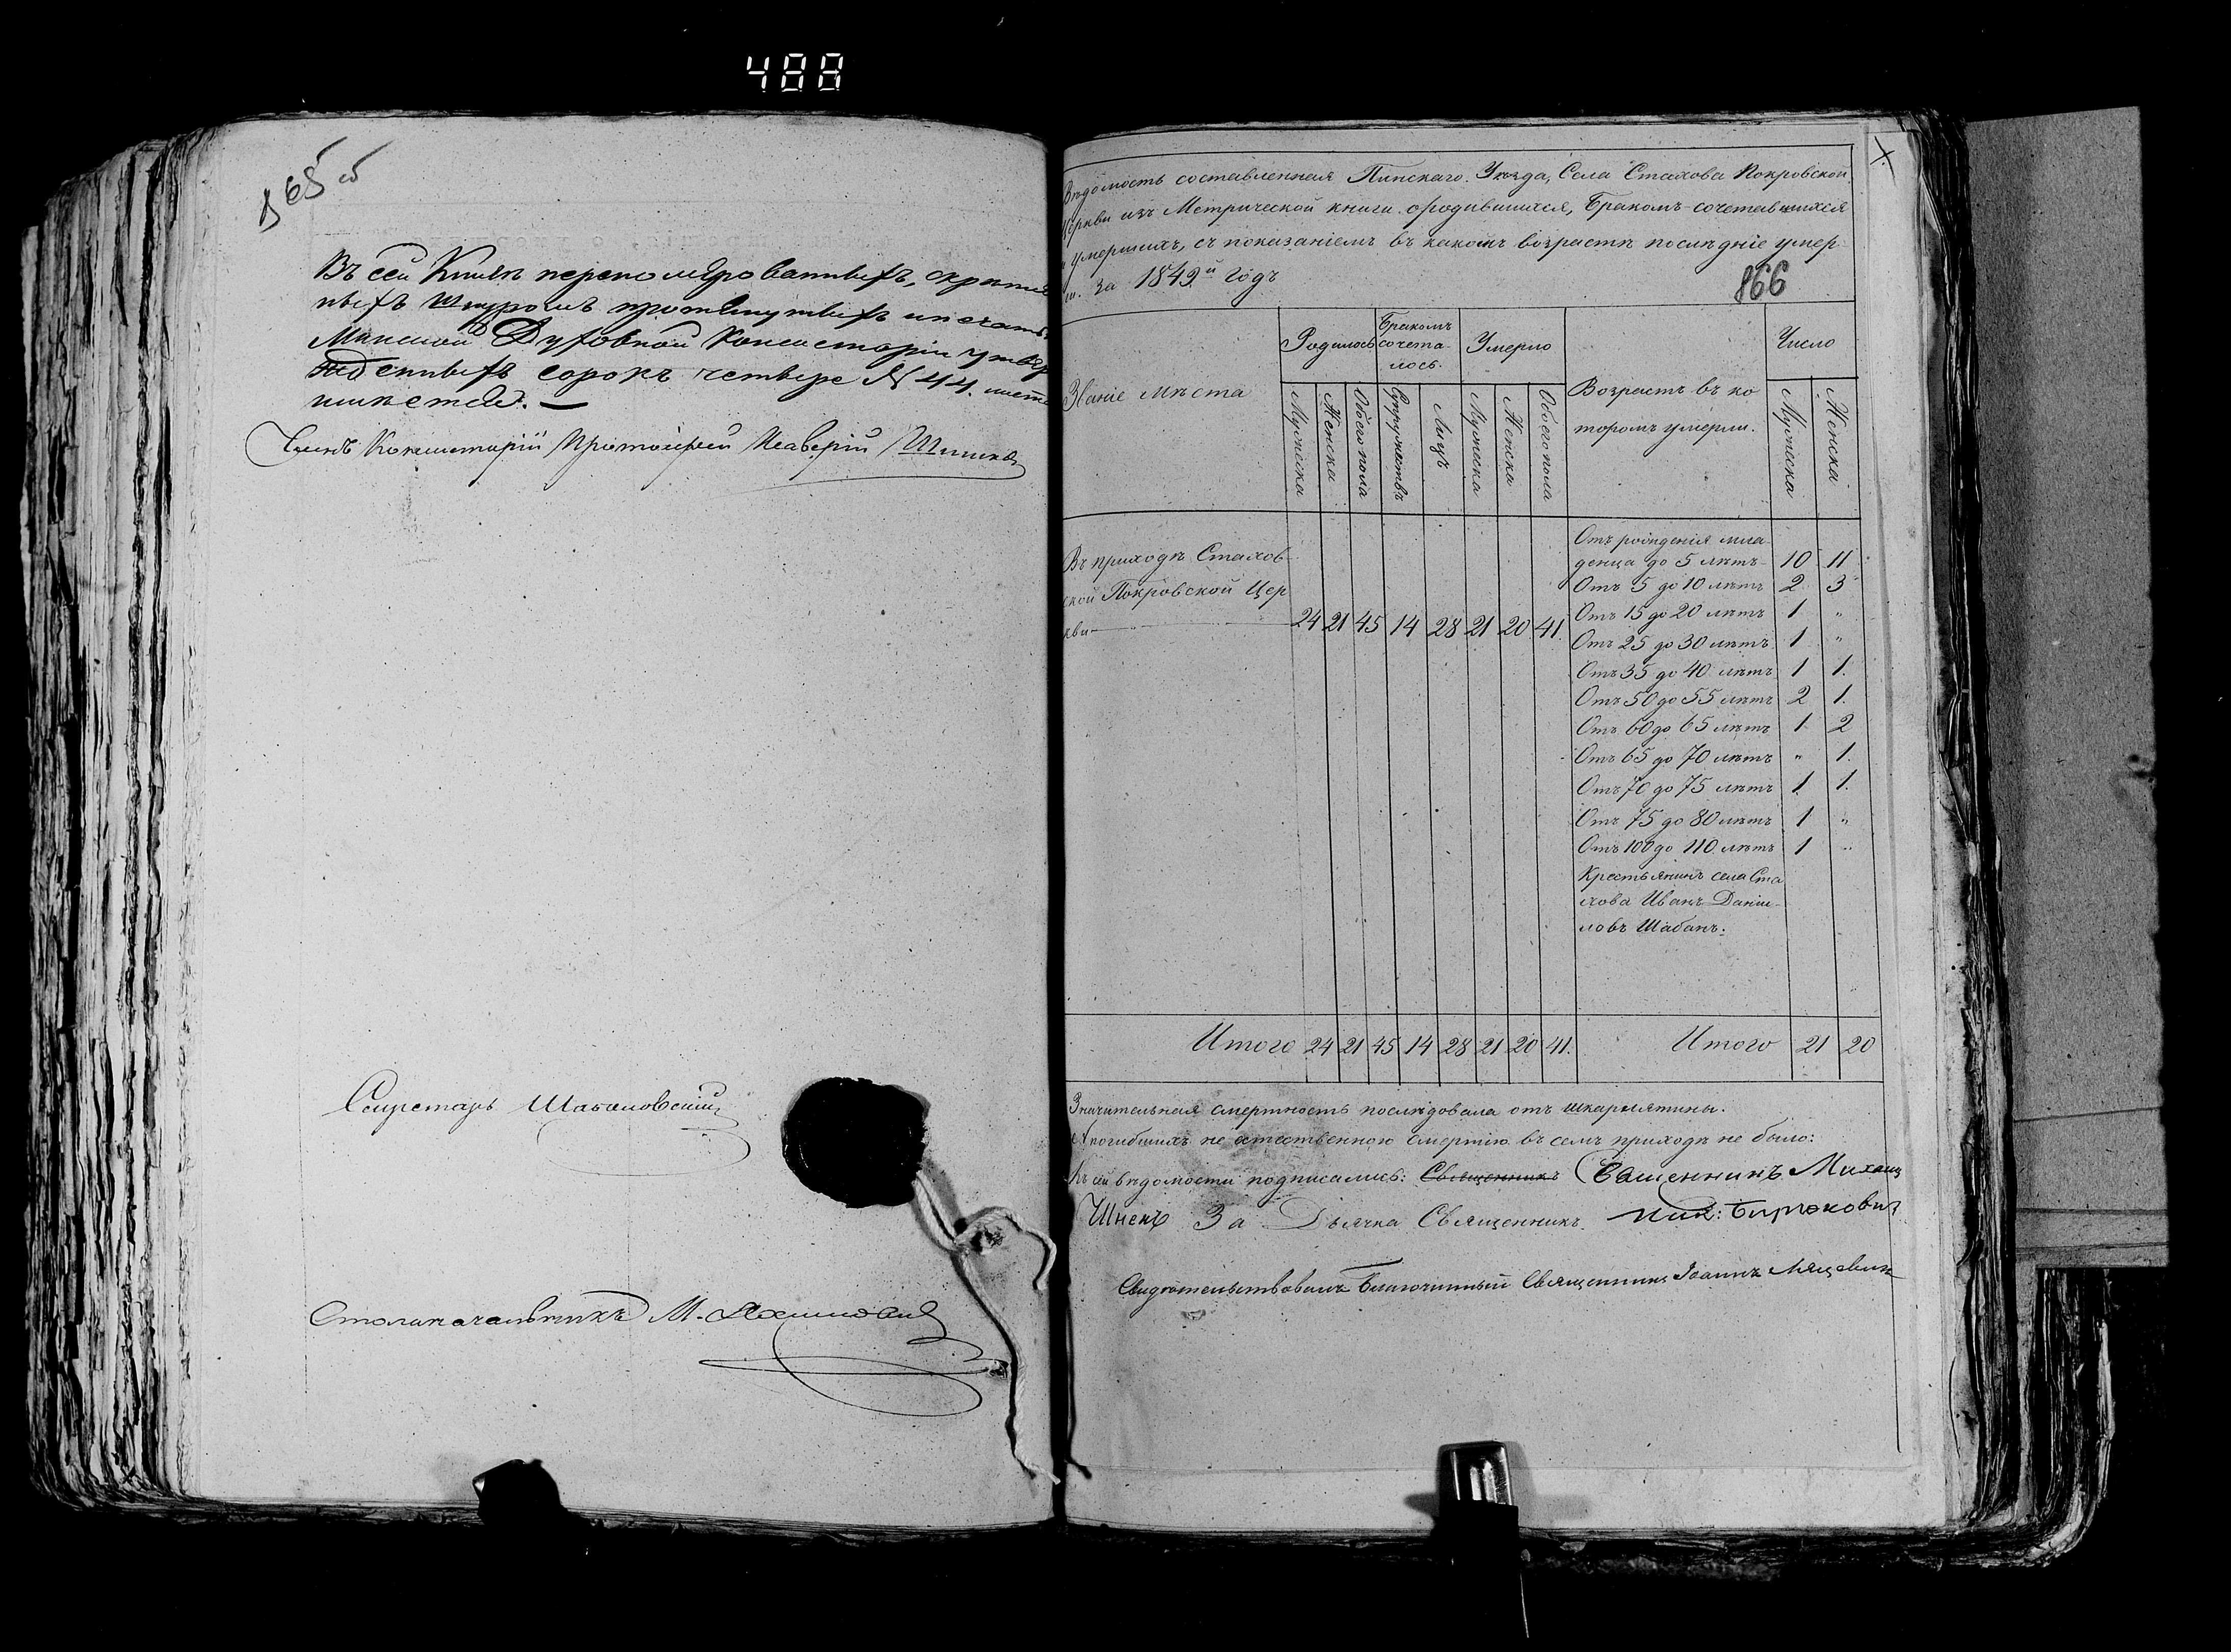 488
865 об
Въ сей Книгѣ перенумерованныхъ, скрепле
ныхъ шнуромъ протянутыхъ и печатью
Минской Духовной Консисторіи утвер
жденныхъ сорокъ четыре N 44. листа
имѣется. —
Членъ Консисторіи Протоіерей
Секретарь
Столоначальникъ М.
866
Вѣдомость составленная Пинскаго Уѣзда, Села Стахова Покровской
Церкви изъ Метрической книги о родившихся, Бракомъ сочетавшихся
и умершихъ, съ показаніемъ въ какомъ возрастѣ послѣдніе умер
ли. За 1849й Годъ
Званіе мѣста
Родилось
Бракомъ
сочета-
лось.
Умерло
Возрастъ въ ко
торомъ умерли.
Число
Мужеска
Женска
Обоего пола
Супружествъ
Лицъ
Мужеска
Женска
Обоего пола
Мужеска
Женска
Въ приходѣ Стахов-
ской Покровской Цер
кви 24 21 45 14 28 21 20 41.
Отъ рожденія мла-
денца до 5 лѣтъ 10 11
Отъ 5 до 10 лѣтъ 2 3
Отъ 15 до 20 лѣтъ 1 "
Отъ 25 до 30 лѣтъ 1 "
Отъ 35 до 40 лѣтъ 1 1.
Отъ 50 до 55 лѣтъ 2 1.
Отъ 60 до 65 лѣтъ 1 2
Отъ 65 до 70 лѣтъ " 1.
Отъ 70 до 75 лѣтъ 1 1.
Отъ 75 до 80 лѣтъ 1 "
Отъ 100 до 110 лѣтъ 1 "
Крестьянинъ села Ста
хова Иванъ Даніи-
ловъ Шабанъ.
Итого 24 21 45 14 28 21 20 41. Итого 21 20
Значительная смертность послѣдовала отъ шкарлятины.
погибшихъ не естественною смертію въ семъ приходѣ не было:
Къ сей вѣдомости подписались: Священникъ Священникъ Михаил
За Дьячка Священникъ Мих: Бирюковичъ
Свидѣтельствовалъ Благочинный Священникъ Іоаннъ